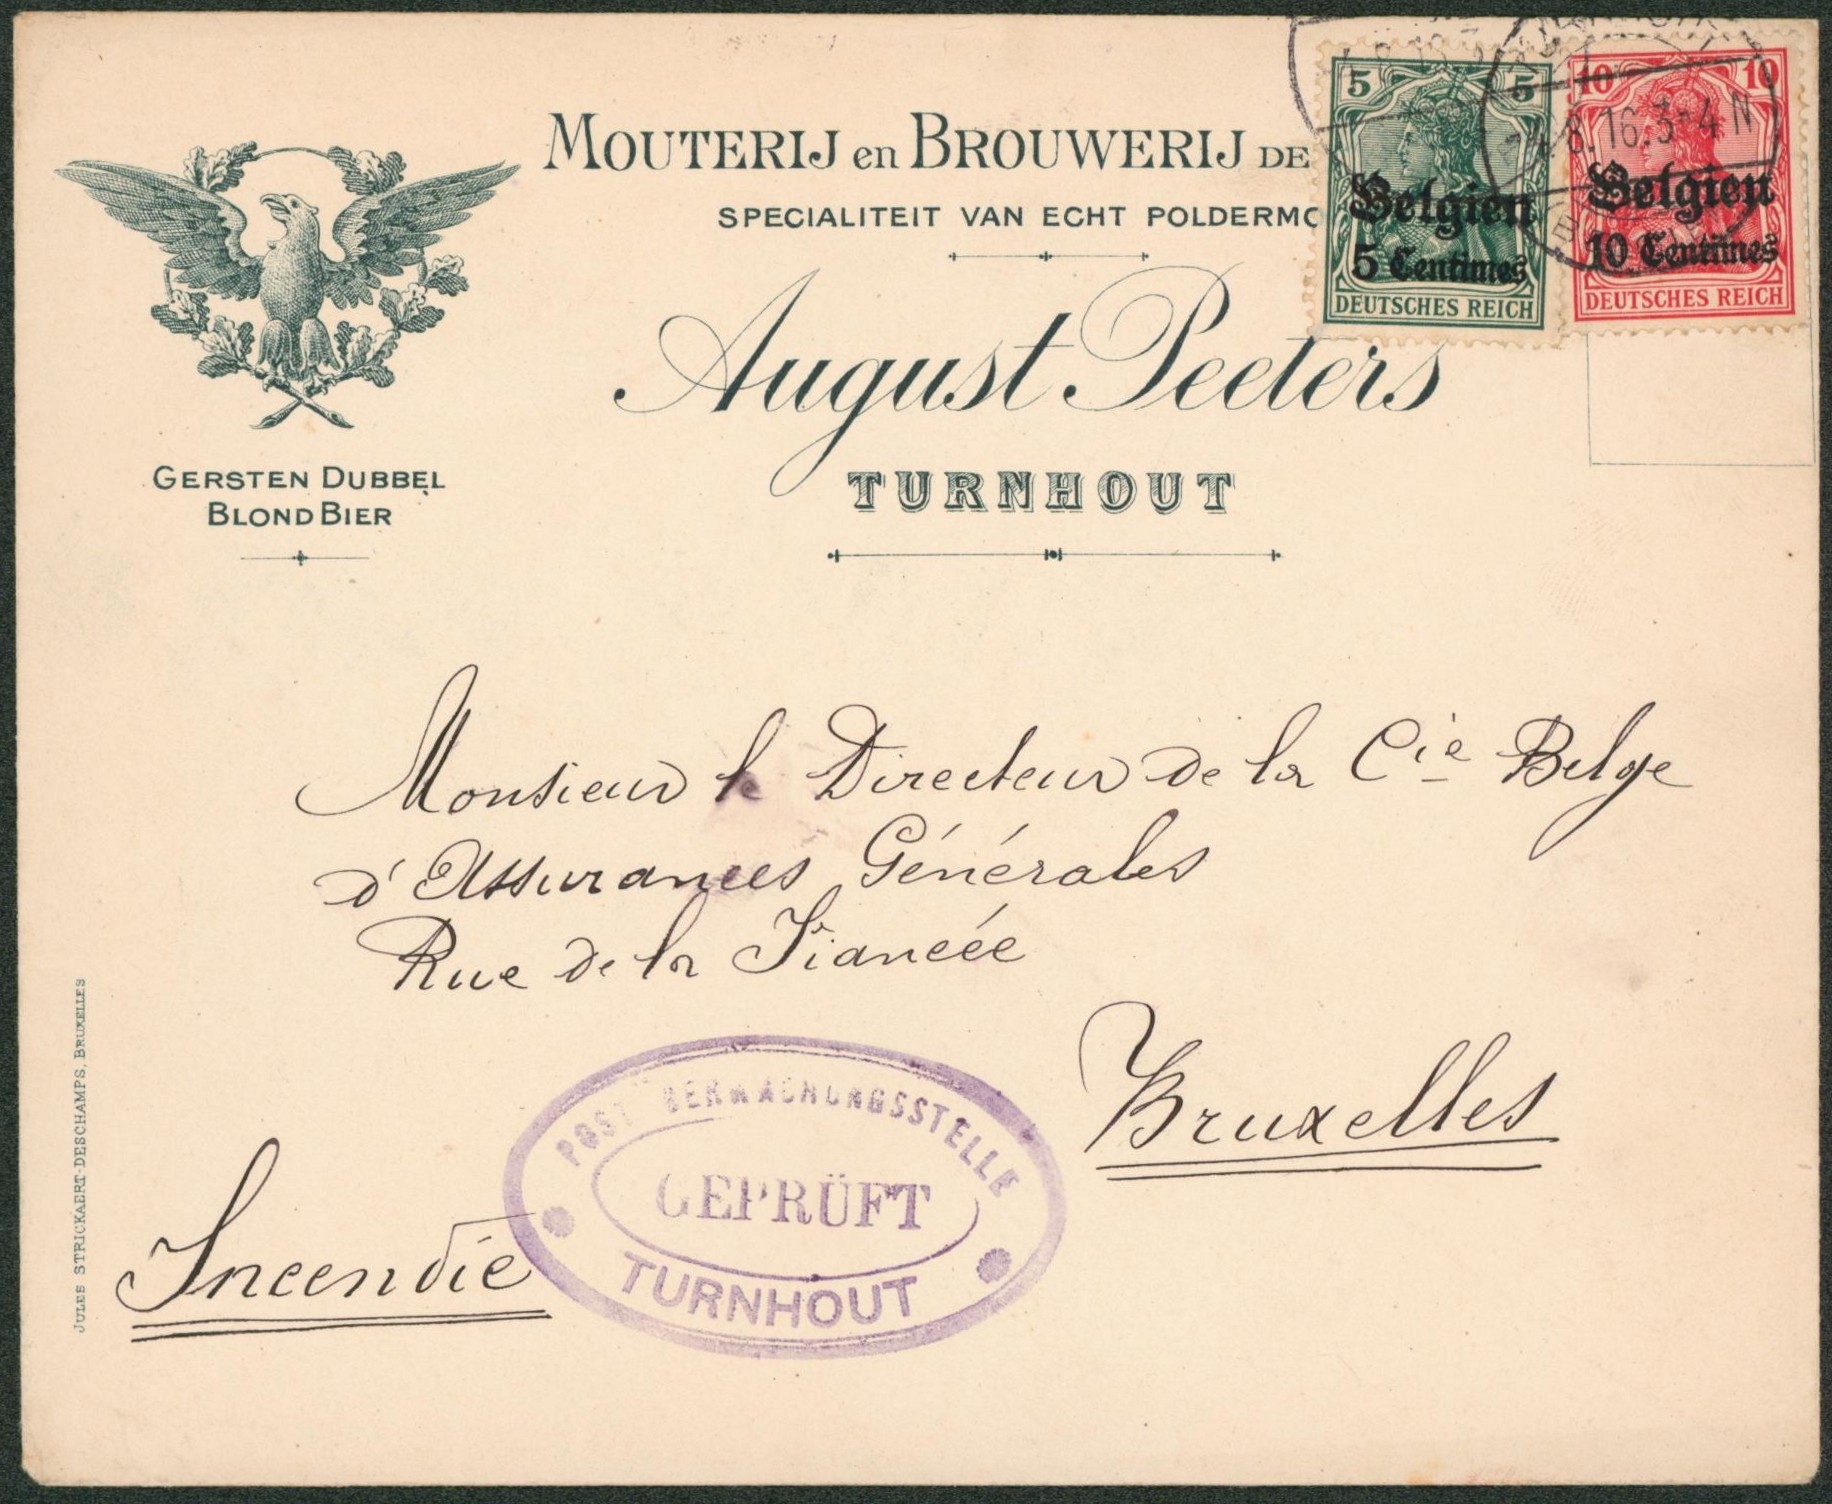 MOUTERIJ en BROUWERIJ DE
SPECIALITEIT VAN ECHT POLDERMO
August Peeters
TURNHOUT
GERSTEN DUBBEL
BLOND BIER
5 5
Belgien
5 Centimes
DEUTSCHES REICH
10 10
Belgien
10 Centimes
DEUTSCHES REICH
8.16.3-4 N
Monsieur le Directeur de la Cie Belge
d'Assurances Générales
Rue de la Fiancée
Bruxelles
Incendie
POST ÜBERWACHUNGSSTELLE
GEPRÜFT
TURNHOUT
JULES STRICKAERT-DESCHAMPS, BRUXELLES